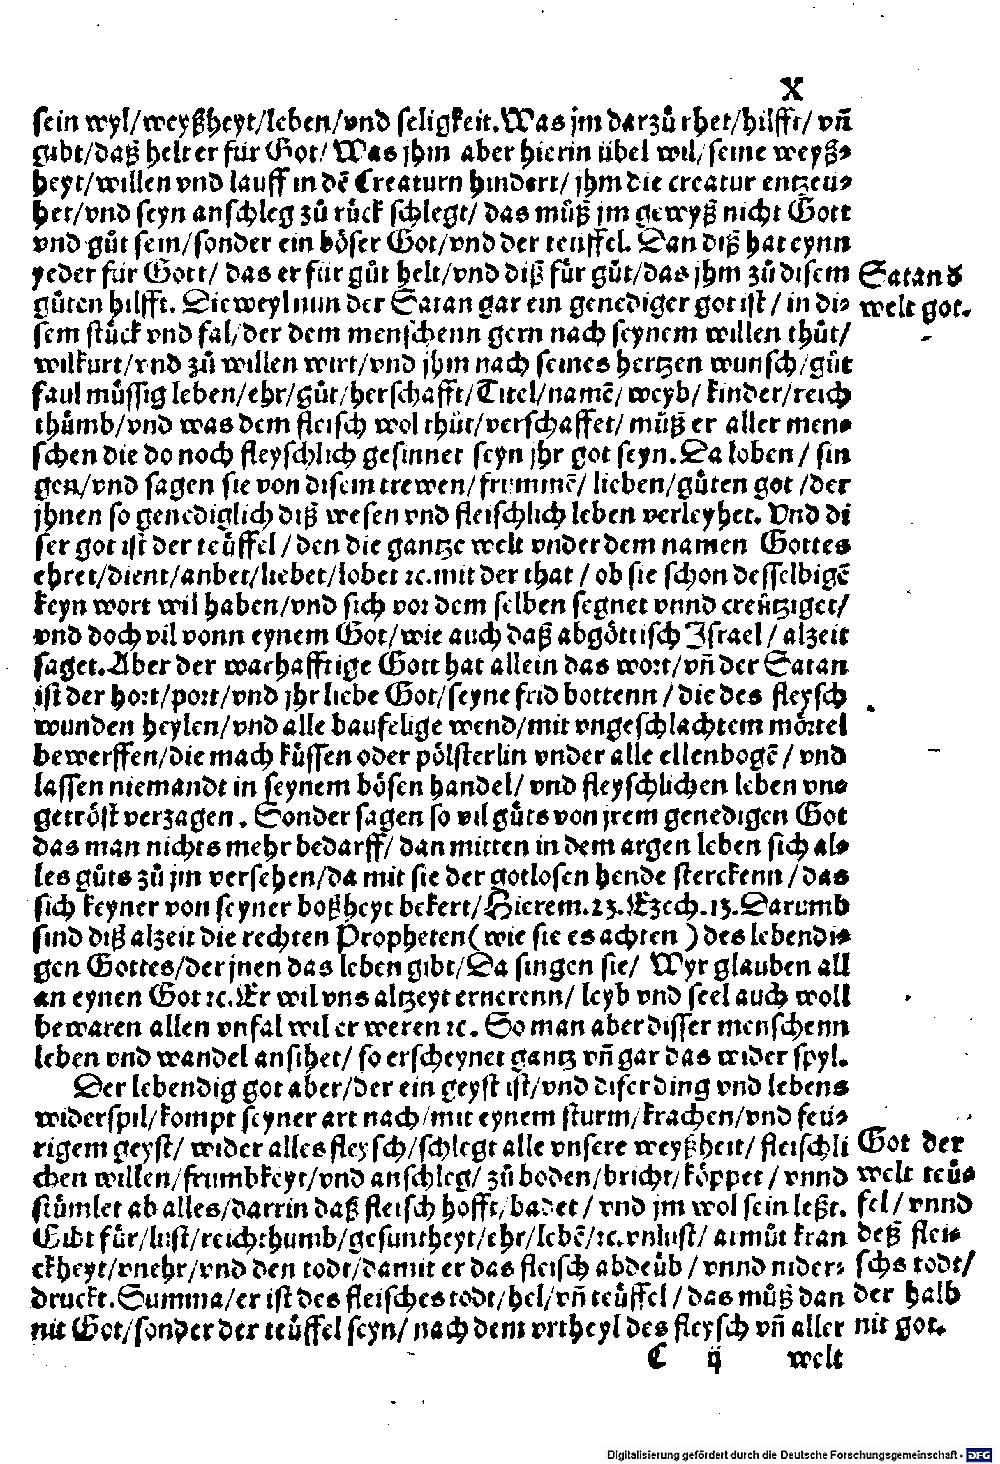 X
sein wyl/weyßheyt/leben/vnd seligkeit. Was jm darzů rhet/hilfft/ vñ
gibt/daß helt er für Got/ Was jhm aber hierin übel wil/ seine weyß⸗
heyt/willen vnd lauff in dē Creaturn hindert/ jhm die creatur entzeu⸗
het/vnd seyn anschleg zů rück schlegt/ das můß jm gewyß nicht Gott
vnd gůt sein/sonder ein böser Got/vnd der teuffel. Dan diß hat eynn
yeder für Gott/ das er für gůt helt/vnd diß für gůt/das jhm zů disem
gůten hilfft. Die weyl nun der Satan gar ein genediger got ist/ in di⸗
sem stück vnd fal/der dem menschenn gern nach seynem willen thůt/
wilfurt/vnd zů willen wirt/vnd jhm nach seines hertzen wunsch/gůt
faul müssig leben/ehr/gůt/herschafft/Titel/namē/ weyb/ kinder/reich
thůmb/vnd was dem fleisch wol thůt/verschaffet/ můß er aller men⸗
schen die do noch fleyschlich gesinnet seyn jhr got seyn. Da loben/ sin
gen/vnd sagen sie von disem trewen/frummē/ lieben/gůten got /der
jhnen so genediglich diß wesen vnd fleischlich leben verleyhet. Vnd di
ser got ist der teüffel/den die gantze welt vnder dem namen Gottes
ehret/dient/anbet/liebet/lobet ꝛc. mit der that/ ob sie schon desselbigē
keyn wort wil haben/vnd sich vor dem selben segnet vnnd creütziget/
vnd doch vil vonn eynem Got/wie auch daß abgöttisch Israel/ alzeit
saget. Aber der warhafftige Gott hat allein das wort/vñ der Satan
ist der hort/port/vnd jhr liebe Got/seyne frid bottenn/ die des fleysch
wunden heylen/vnd alle baufelige wend/mit vngeschlachtem mörtel
bewerffen/die mach küssen oder pölsterlin vnder alle ellenbogē/ vnd
lassen niemandt in seynem bösen handel/ vnd fleyschlichen leben vn⸗
getröst verzagen. Sonder sagen so vil gůts von jrem genedigen Got
das man nichts mehr bedarff/ dan mitten in dem argen leben sich al⸗
les gůts zů jm versehen/da mit sie der gotlosen hende sterckenn/das
sich keyner von seyner boßheyt bekert/Hierem. 23. Ezech. 13. Darumb
sind diß alzeit die rechten Propheten (wie sie es achten) des lebendi⸗
gen Gottes/der jnen das leben gibt/Da singen sie/ Wyr glauben all
an eynen Got ꝛc. Er wil vns altzeyt ernerenn/ leyb vnd seel auch woll
bewaren allen vnfal wil er weren ꝛc. So man aber disser menschenn
leben vnd wandel ansihet/ so erscheynet gantz vñ gar das wider spyl.
Der lebendig got aber/der ein geyst ist/vnd diser ding vnd lebens
widerspil/kompt seyner art nach/mit eynem sturm/krachen/vnd feü⸗
rigem geyst/ wider alles fleysch/schlegt alle vnsere weyßheit/ fleischli
chen willen/frumbkeyt/vnd anschleg/ zů boden/bricht/köppet/ vnnd
stümlet ab alles/darrin daß fleisch hofft/badet/ vnd jm wol sein leßt.
Gibt für/lust/reichthumb/gesuntheyt/ehr/lebē/ꝛc. vnlust/ armůt kran
ckheyt/vnehr/vnd den todt/damit er das fleisch abdeüb/ vnnd nider⸗
druckt. Summa/er ist des fleisches todt/hel/vñ teüffel/das můß dan
nit Got/sonder der teüffel seyn/ nach dem vrtheyl des fleysch vñ aller
C ij welt
Satan d
welt got.
Got der
welt teü⸗
fel/ vnnd
deß flei⸗
schs todt/
der halb
nit got.
Digitalisierung gefördert durch die Deutsche Forschungsgemeinschaft - DFG